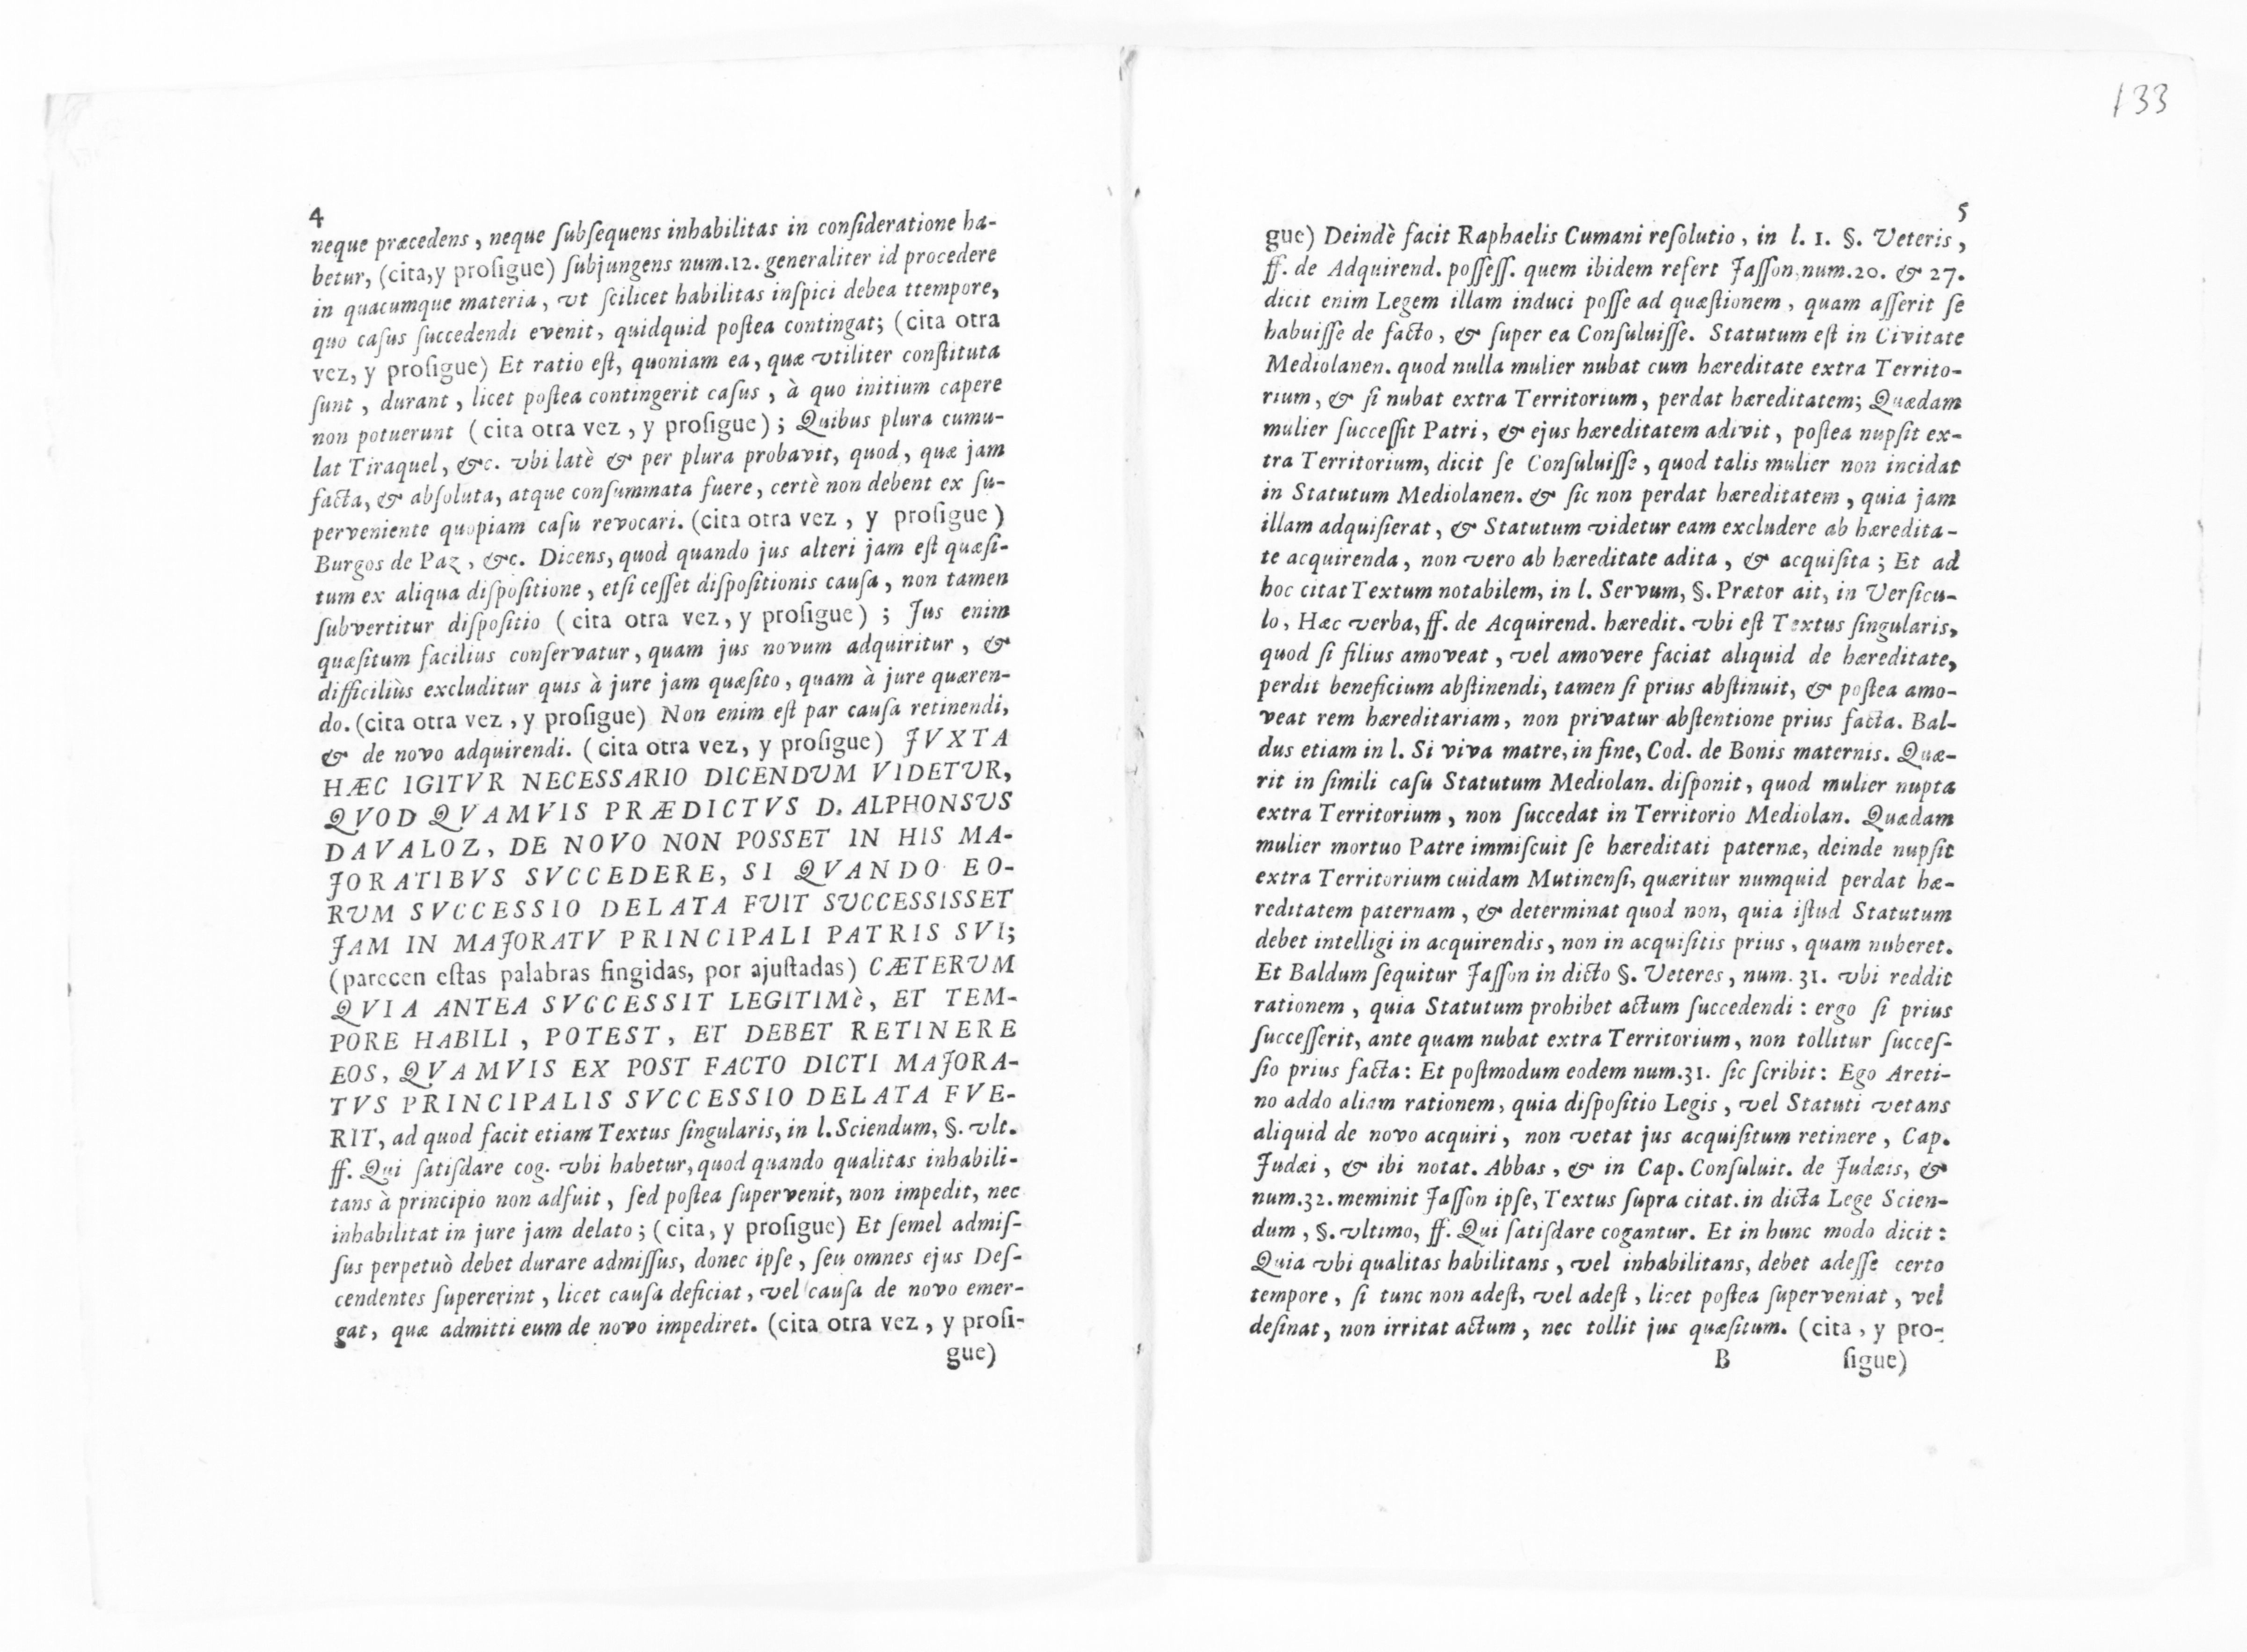 4
neque præcedens, neque ſubſequens inhabilitas in conſideratione ha-
betur, (cita,y proſigue) ſubjungens num.12. generaliter id procedere
in quacumque materia, vt ſcilicet habilitas inſpici debea ttempore,
quo caſus ſuccedendi evenit, quidquid poſtea contingat; (cita otra
vez, y proſigue) Et ratio eſt, quoniam ea, quæ vtiliter conſtituta
ſunt, durant, licet poſtea contingerit caſus, à quo initium capere
non potuerunt (cita otra vez, y proſigue); Quibus plura cumu-
lat Tiraquel, &c. vbi latè & per plura probavit, quod, quæ jam
facta, & abſoluta, atque conſummata fuere, certè non debent ex ſu-
perveniente quopiam caſu revocari. (cita otra vez, y proſigue)
Burgos de Paz, &c. Dicens, quod quando jus alteri jam eſt quæſi-
tum ex aliqua diſpoſitione, etſi ceſſet diſpoſitionis cauſa, non tamen
ſubvertitur diſpoſitio (cita otra vez, y proſigue); Jus enim
quæſitum facilius conſervatur, quam jus novum adquiritur, &
difficiliùs excluditur quis à jure jam quæſito, quam à jure quæren-
do. (cita otra vez, y proſigue) Non enim eſt par cauſa retinendi,
& de novo adquirendi. (cita otra vez, y proſigue) JVXTA
HÆC IGITVR NECESSARIO DICENDUM VIDETUR,
QVOD QVAMVIS PRÆDICTVS D. ALPHONSUS
DAVALOZ, DE NOVO NON POSSET IN HIS MA-
JORATIBVS SVCCEDERE, SI QVANDO EO-
RUM SVCCESSIO DELATA FUIT SUCCESSISSET
JAM IN MAJORATV PRINCIPALI PATRIS SVI;
(parecen eſtas palabras fingidas, por ajuſtadas) CÆTERUM
QVIA ANTEA SVCCESSIT LEGITIMè, ET TEM-
PORE HABILI, POTEST, ET DEBET RETINERE
EOS, QVAMVIS EX POST FACTO DICTI MAJORA-
TVS PRINCIPALIS SVCCESSIO DELATA FVE-
RIT, ad quod facit etiam Textus ſingularis, in l. Sciendum, §. vlt.
ff. Qui ſatiſdare cog. vbi habetur, quod quando qualitas inhabili-
tans à principio non adfuit, ſed poſtea ſupervenit, non impedit, nec
inhabilitat in jure jam delato; (cita, y proſigue) Et ſemel admiſ-
ſus perpetuò debet durare admiſſus, donec ipſe, ſeu omnes ejus Deſ-
cendentes ſupererint, licet cauſa deficiat, vel cauſa de novo emer-
gat, quæ admitti eum de novo impediret. (cita otra vez, y proſi-
gue)
133
5
gue) Deindè facit Raphaelis Cumani reſolutio, in l. 1. §. Veteris,
ff. de Adquirend. poſſeſſ. quem ibidem refert Jaſſon, num.20. & 27.
dicit enim Legem illam induci poſſe ad quæſtionem, quam aſſerit ſe
habuiſſe de facto, & ſuper ea Conſuluiſſe. Statutum eſt in Civitate
Mediolanen. quod nulla mulier nubat cum hæreditate extra Territo-
rium, & ſi nubat extra Territorium, perdat hæreditatem; Quædam
mulier ſucceſſit Patri, & ejus hæreditatem adivit, poſtea nupſit ex-
tra Territorium, dicit ſe Conſuluiſſe, quod talis mulier non incidat
in Statutum Mediolanen. & ſic non perdat hæreditatem, quia jam
illam adquiſierat, & Statutum videtur eam excludere ab hæredita-
te acquirenda, non vero ab hæreditate adita, & acquiſita; Et ad
hoc citat Textum notabilem, in l. Servum, §. Prætor ait, in Verſicu-
lo, Hæc verba, ff. de Acquirend. hæredit. vbi eſt Textus ſingularis,
quod ſi filius amoveat, vel amovere faciat aliquid de hæreditate,
perdit beneficium abſtinendi, tamen ſi prius abſtinuit, & poſtea amo-
veat rem hæreditariam, non privatur abſtentione prius facta. Bal-
dus etiam in l. Si viva matre, in fine, Cod. de Bonis maternis. Quæ-
rit in ſimili caſu Statutum Mediolan. diſponit, quod mulier nupta
extra Territorium, non ſuccedat in Territorio Mediolan. Quædam
mulier mortuo Patre immiſcuit ſe hæreditati paternæ, deinde nupſit
extra Territorium cuidam Mutinenſi, quæritur numquid perdat hæ-
reditatem paternam, & determinat quod non, quia iſtud Statutum
debet intelligi in acquirendis, non in acquiſitis prius, quam nuberet.
Et Baldum ſequitur Jaſſon in dicto §. Veteres, num. 31. vbi reddit
rationem, quia Statutum prohibet actum ſuccedendi: ergo ſi prius
ſucceſſerit, ante quam nubat extra Territorium, non tollitur ſucceſ-
ſio prius facta: Et poſtmodum eodem num.31. ſic ſcribit: Ego Areti-
no addo aliam rationem, quia diſpoſitio Legis, vel Statuti vetans
aliquid de novo acquiri, non vetat jus acquiſitum retinere, Cap.
Judæi, & ibi notat. Abbas, & in Cap. Conſuluit. de Judæis, &
num.32. meminit Jaſſon ipſe, Textus ſupra citat. in dicta Lege Scien-
dum, §. vltimo, ff. Qui ſatiſdare cogantur. Et in hunc modo dicit:
Quia vbi qualitas habilitans, vel inhabilitans, debet adeſſe certo
tempore, ſi tunc non adeſt, vel adeſt, licet poſtea ſuperveniat, vel
deſinat, non irritat actum, nec tollit jus quæſitum. (cita, y pro-
B ſigue)